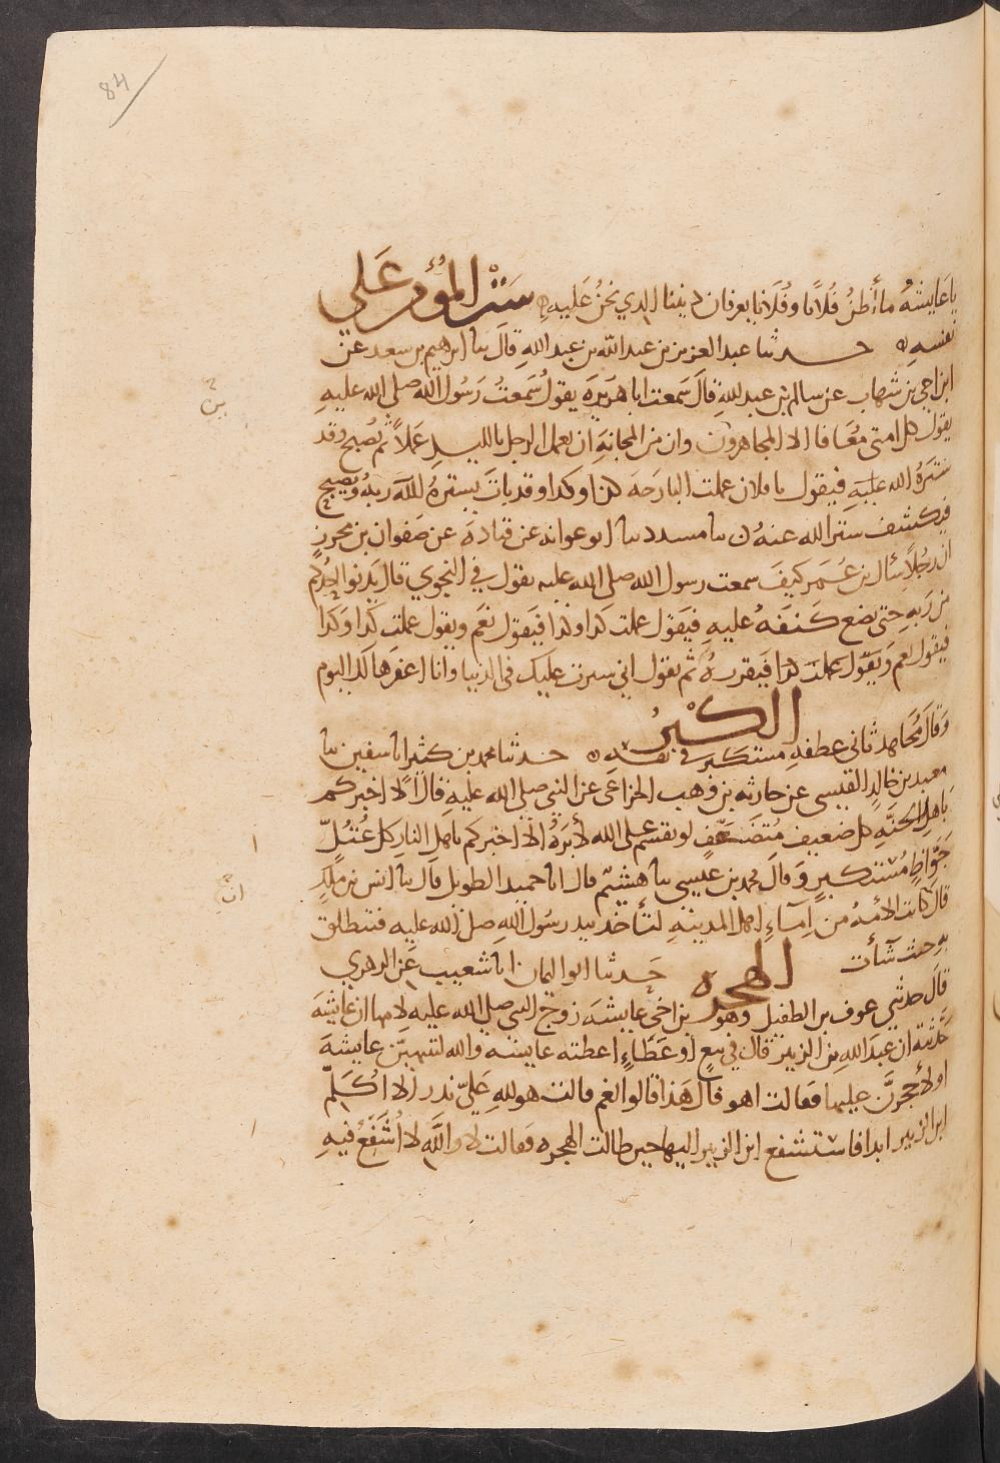 84
يا عايشةُ ما أظنُّ فُلانًا وفُلانا يعرفان ديننا الذي نحنُ عَليهِ ستر المؤمن عَلى
نفسِهِ حدثنا عبد العزيز بن عبد الله بن عبد اللهِ قال نا ابرهيم بن سعد عن
ابن اخي بن شهاب عن سالم بن عبد اللهِ قال سَمعت ابا هريرة يقول سَمعتُ رَسُول الله صلى الله عليهِ
يقول كل امتى معَافا الا المجاهرون وان من المجانةِ ان يعمل الرجل بالليلِ عَملاً ثم يُصبح وقد
سَتَرهُ الله عليهِ فيقول يا فلان عملت البارحَة كذا وكذا وقد باتَ يسترهُ اللهَ ربهُ ويصبح
فيكشف ستر الله عنهُ نا مسدد نا ابو عوانه عن قتادة عن صَفوان بن محرز
ان رجُلاً سأل بن عُمَر كيفَ سمعت رسول الله صلى الله عليه يقول في النجوي قال يَدنوا احدُكم
من رَبهِ حتى يضع كَنَفهُ عليهِ فيَقول عملت كذا وكذا فيَقول نعَم ويقول عملت كذا وكذا
فيقول نعم وَيَقول عملت كذا فيَقررهُ ثم يقول اني سترت عليك في الدنيا وانا اغفرها لك اليوم
الكبرُ
وَقالَ مُجاهد ثانى عطفهِ مستكبر في نفسه حدثنا محمد بن كثير انا سفين نا
معبد بن خالد القيسى عن حارثه بن وهب الخزاعَى عن النبي صلى الله عليهِ قال الا اخبركم
باهل الجنَّهِ كل ضعيف مُتَضَعَّفٍ لو يقسم على الله لأبرَهُ الا اخبركم باهل النار كل عُتُلٍّ
جَوَّاظٍ مُستكبرٍ وَقال محمد بن عيسى نا هشيم قال انا حميد الطويل قال نا انس بن ملكٍ
قال كانت الامهُ من اِمَاءِ اهل المدينهِ لتأخذ بيد رسُول اللهِ صلى الله عليه فتنطلق
بهِ حيث شأت الهجره حَدثنا ابو اليمان انا شعيب عَن الزهري
قال حدثني عوف بن الطفيل وهو بن اخي عايشهَ زوج النبي صلى الله عليهِ لامها ان عايشهَ
حُدِّثت ان عبدَ اللهِ بن الزبير قال في بيعٍ او عَطاءٍ اعطته عايشه والله لتنتهيَن عايشهَ
او لأحجرنَّ عليها فقالت اهو قال هَذا قالوا نعم قالت هو للهِ عَليّ نذر الا اُكلّم
ابن الزبير ابدا فاستشفع ابن الزبير اليها حين طالت الهجره فقالت لا واللهِ لا اُشَفّعُ فيهِ